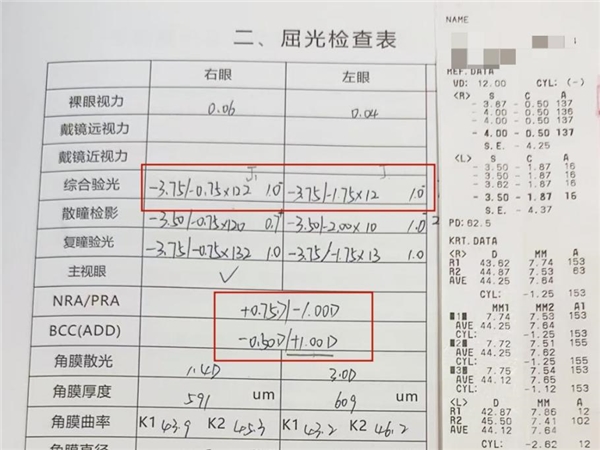 二、屈光检查表
右眼 左眼
裸眼视力 0.06 0.04
戴镜远视力
戴镜近视力
综合验光 -3.75/-0.75×122 1.0 -3.75/-1.75×12 1.0
散瞳检影 -3.50/-0.75×120 0.7+ -3.50/-2.00×10 1.0
复瞳验光 -3.75/-0.75×132 1.0 -3.75/-1.75×13 1.0
主视眼 ✓
NRA/PRA +0.75D/-1.00D
BCC(ADD) -0.50D/+1.00D
角膜散光 1.4D 3.0D
角膜厚度 591 um 609 um
角膜曲率 K1 43.9 K2 45.3 K1 43.2 K2 46.2
角膜直径
NAME
REF.DATA
VD: 12.00 CYL: (-)
<R> S C A
- 3.87 - 0.50 137
- 4.00 - 0.50 136
- 4.00 - 0.50 137
- 4.00 - 0.50 137
S.E. - 4.25
<L> S C A
- 3.50 - 1.87 16
- 3.50 - 1.87 16
- 3.62 - 1.87 16
- 3.50 - 1.87 16
S.E. - 4.37
PD: 62.5
KRT.DATA
<R> D MM A
R1 43.62 7.74 153
R2 44.87 7.53 63
AVE 44.25 7.64
CYL: -1.25 153
MM1 MM2 A1
1 7.74 7.53 153
AVE 44.25 7.64
CYL: -1.25 153
2 7.72 7.51 155
AVE 44.37 7.62
CYL: -1.25 155
3 7.75 7.54 153
AVE 44.12 7.64
CYL: -1.12 153
<L> D MM A
R1 42.87 7.86 12
R2 45.50 7.41 102
AVE 44.12 7.64
CYL: -2.62 12